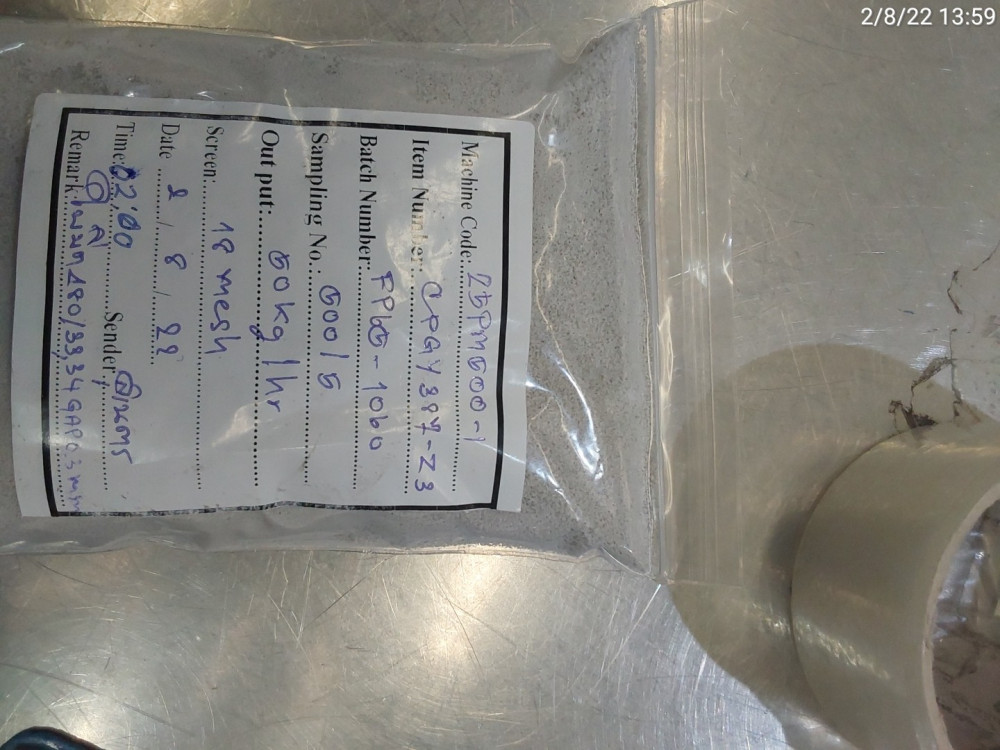 2/8/22 13:59
Machine Code: 25PM500-1
Item Number: CPGY387-Z3
Batch Number: FPb5-1060
Sampling No.: 500/5
Out put: 50kg/hr
Screen: 18 mesh
Date 2/8/22
Time: 02:00 Sender
Remark: 480/33,34 GAP 0.3mm